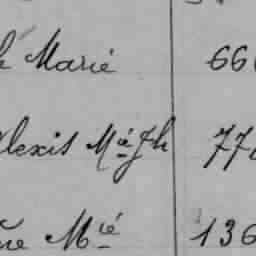 Marié 66
Alexis Mié Jh 77
Mié 136